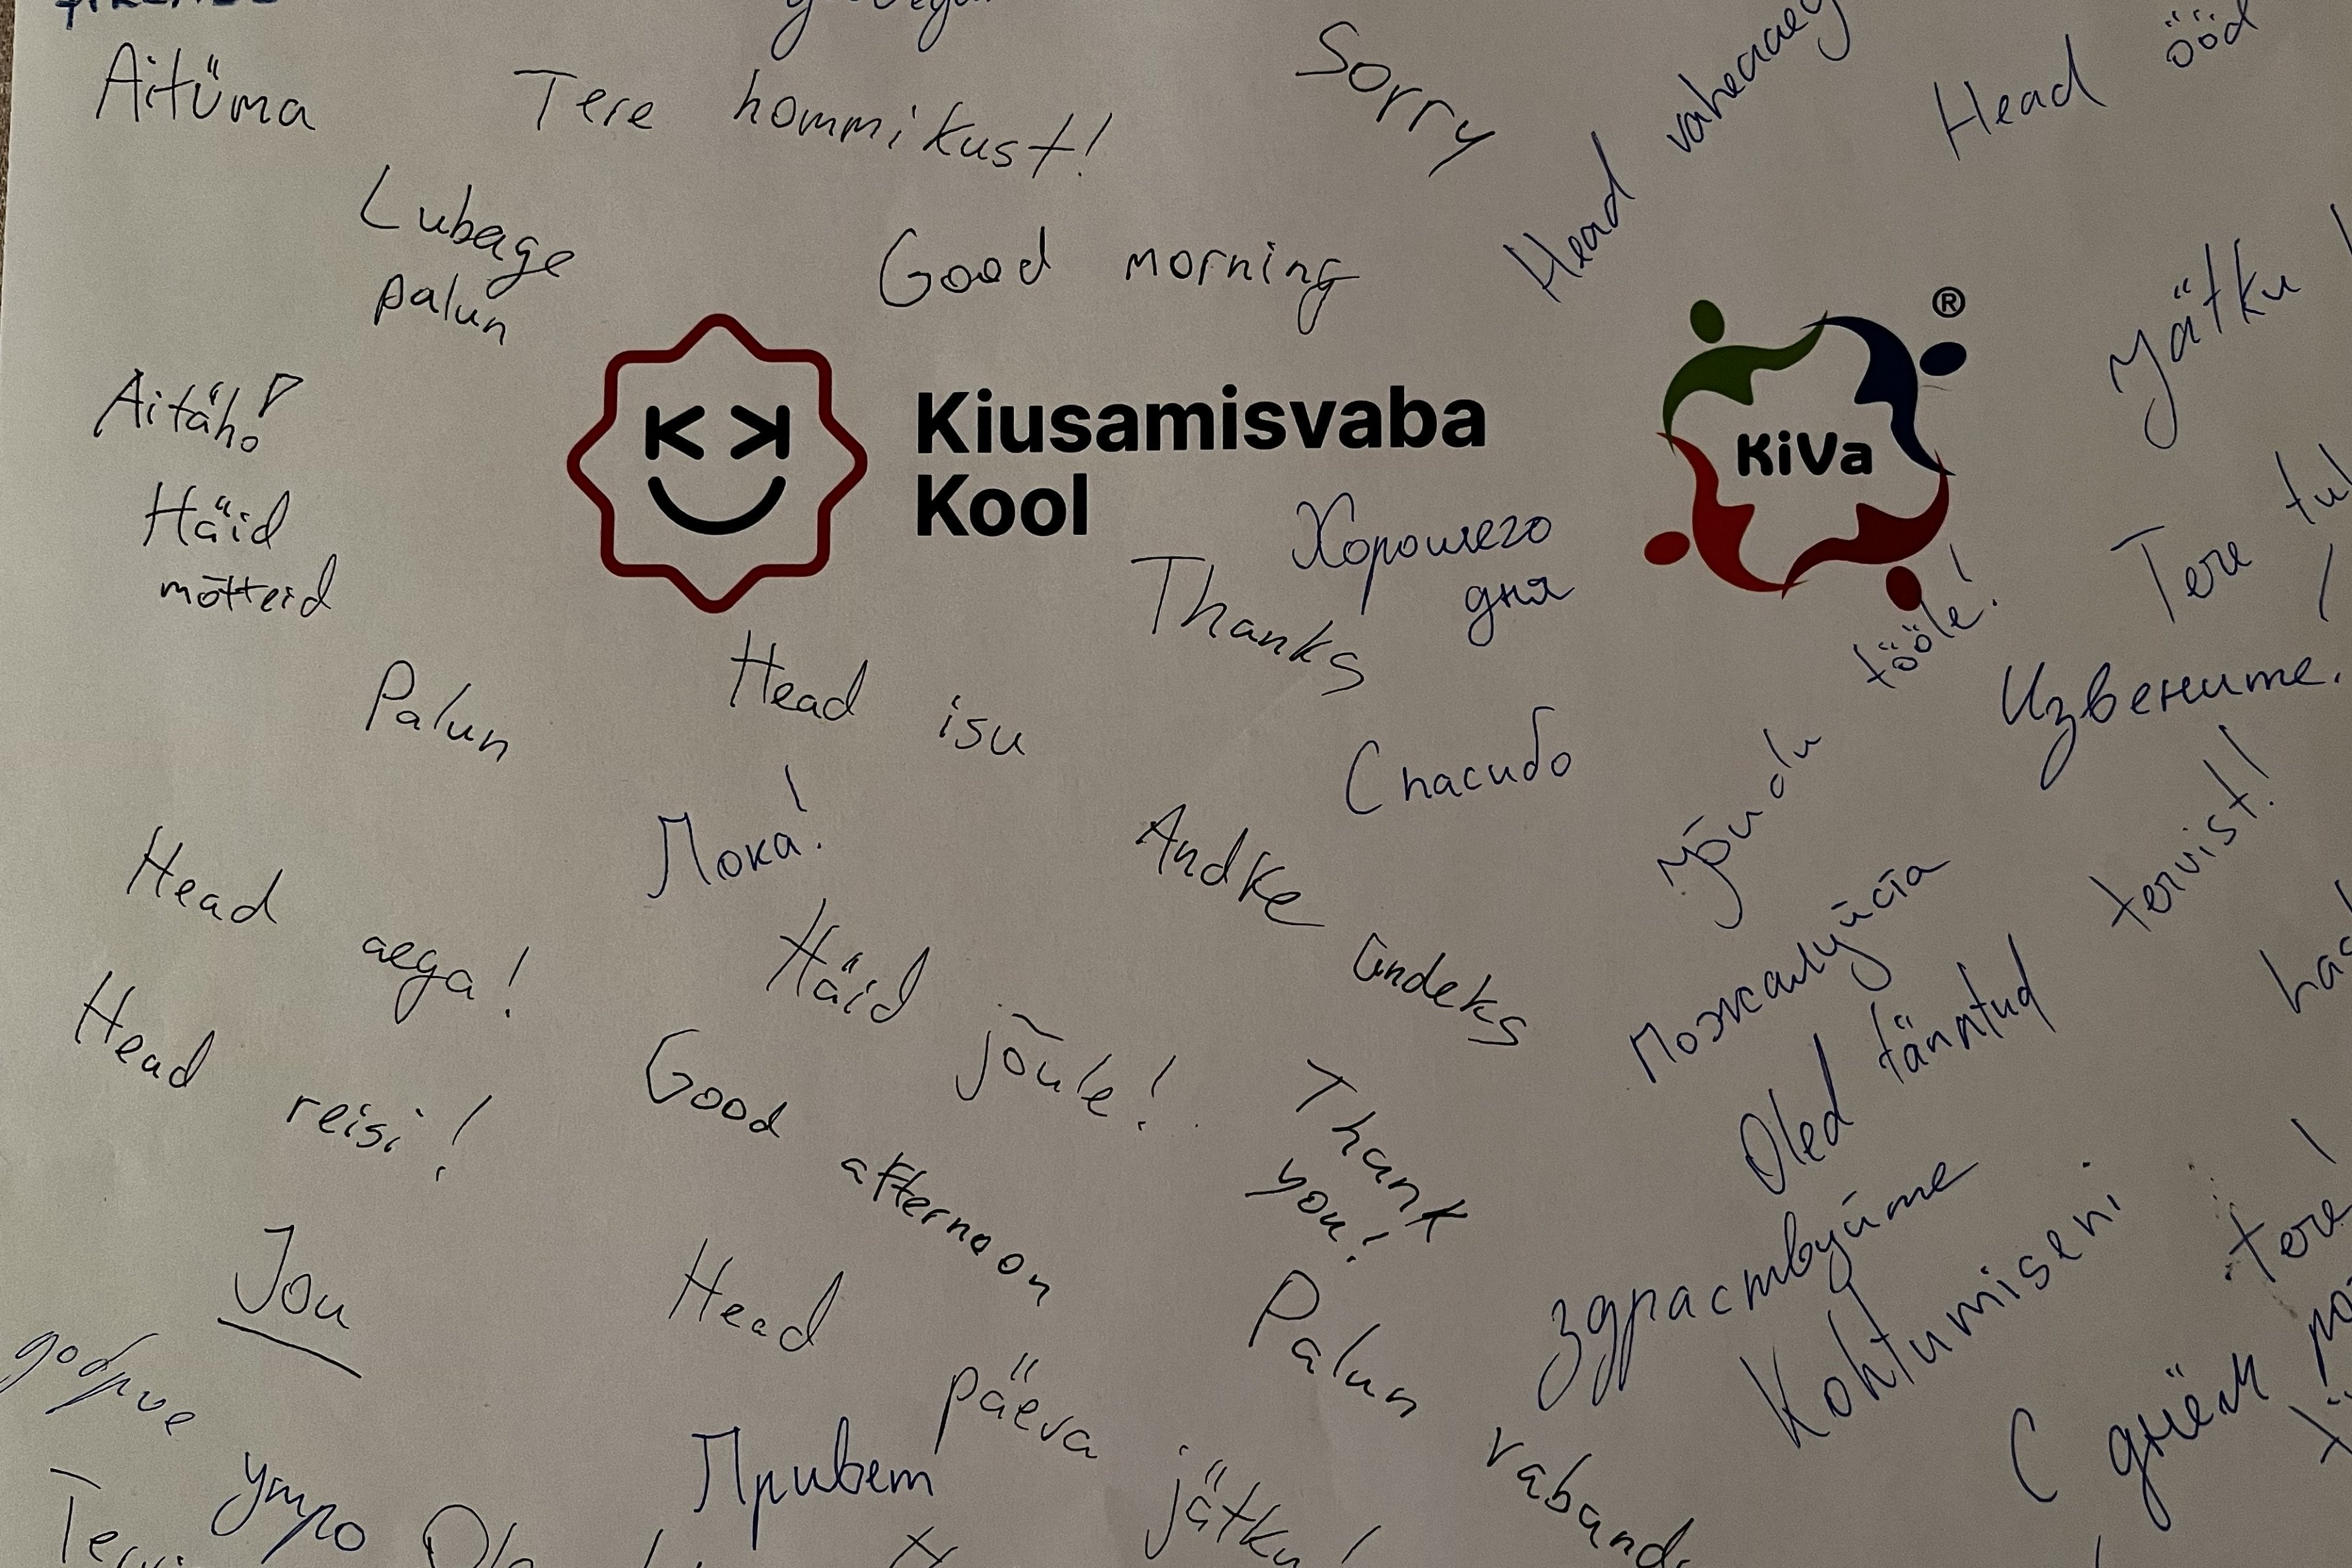 Aitüma
Tere hommikust!
Sorry
Head vaheaeg
Head ööd
Lubage
palun
Good morning
Jätku
®
Aitäh!
Kiusamisvaba
Kool
KiVa
Häid
mõtteid
Хорошего
дня
Thanks
Tere
Palun
Head isu
Jõudu tööle!
Извените.
Спасибо
Пока!
Andke andeks
Head aega!
Häid jõule!
Пожалуйста
tervist!
Head reisi!
Good afternoon
Thank
you!
Oled tänntud
Здраствуйте
Kohtumiseni
tere!
Jou
Head päeva jätku!
Palun
доброе
утро
Привет
С днём